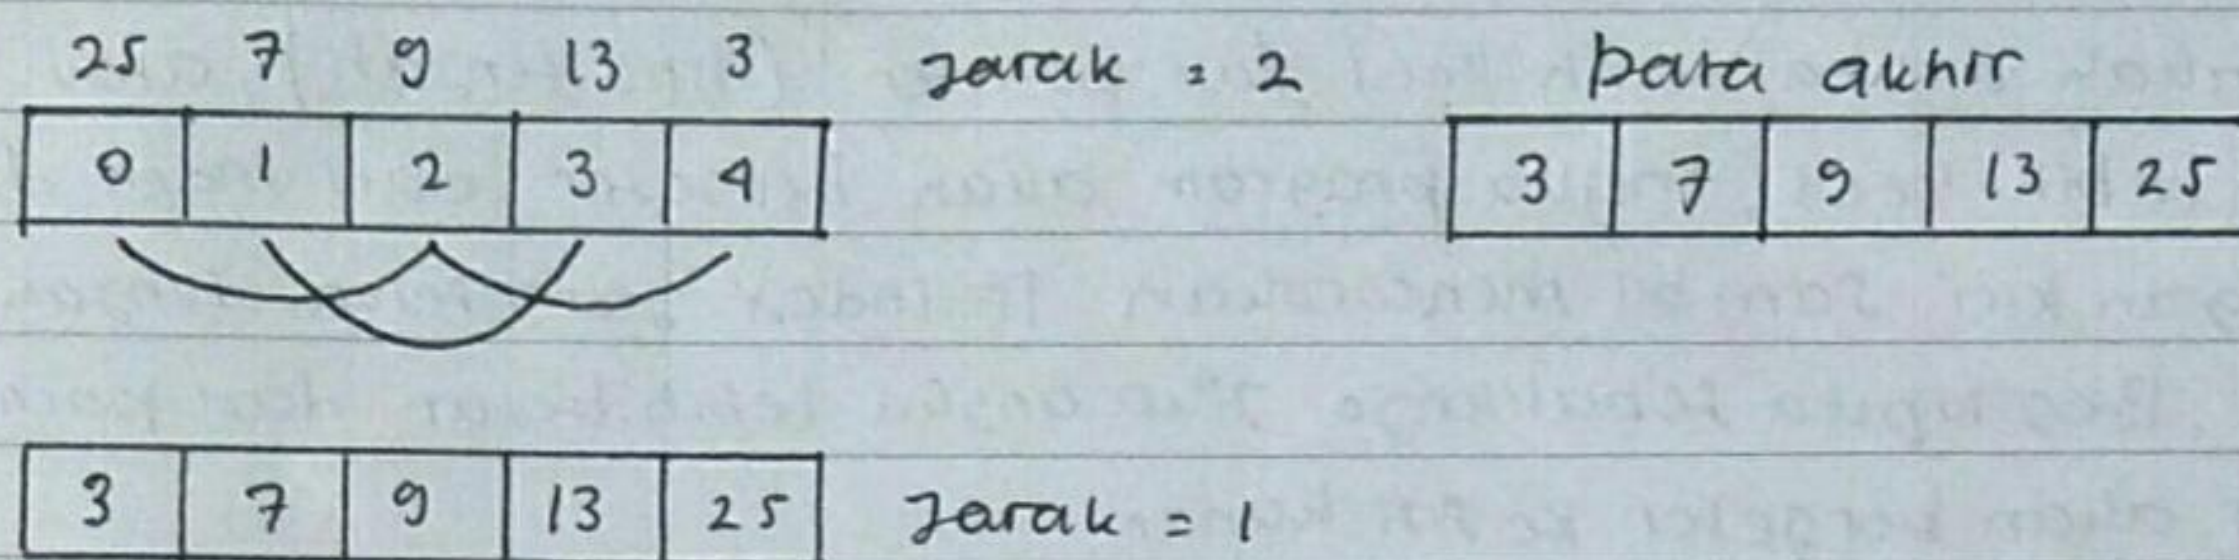 25 7 9 13 3 Jarak = 2 Data akhir
0 1 2 3 4 3 7 9 13 25
3 7 9 13 25 Jarak = 1